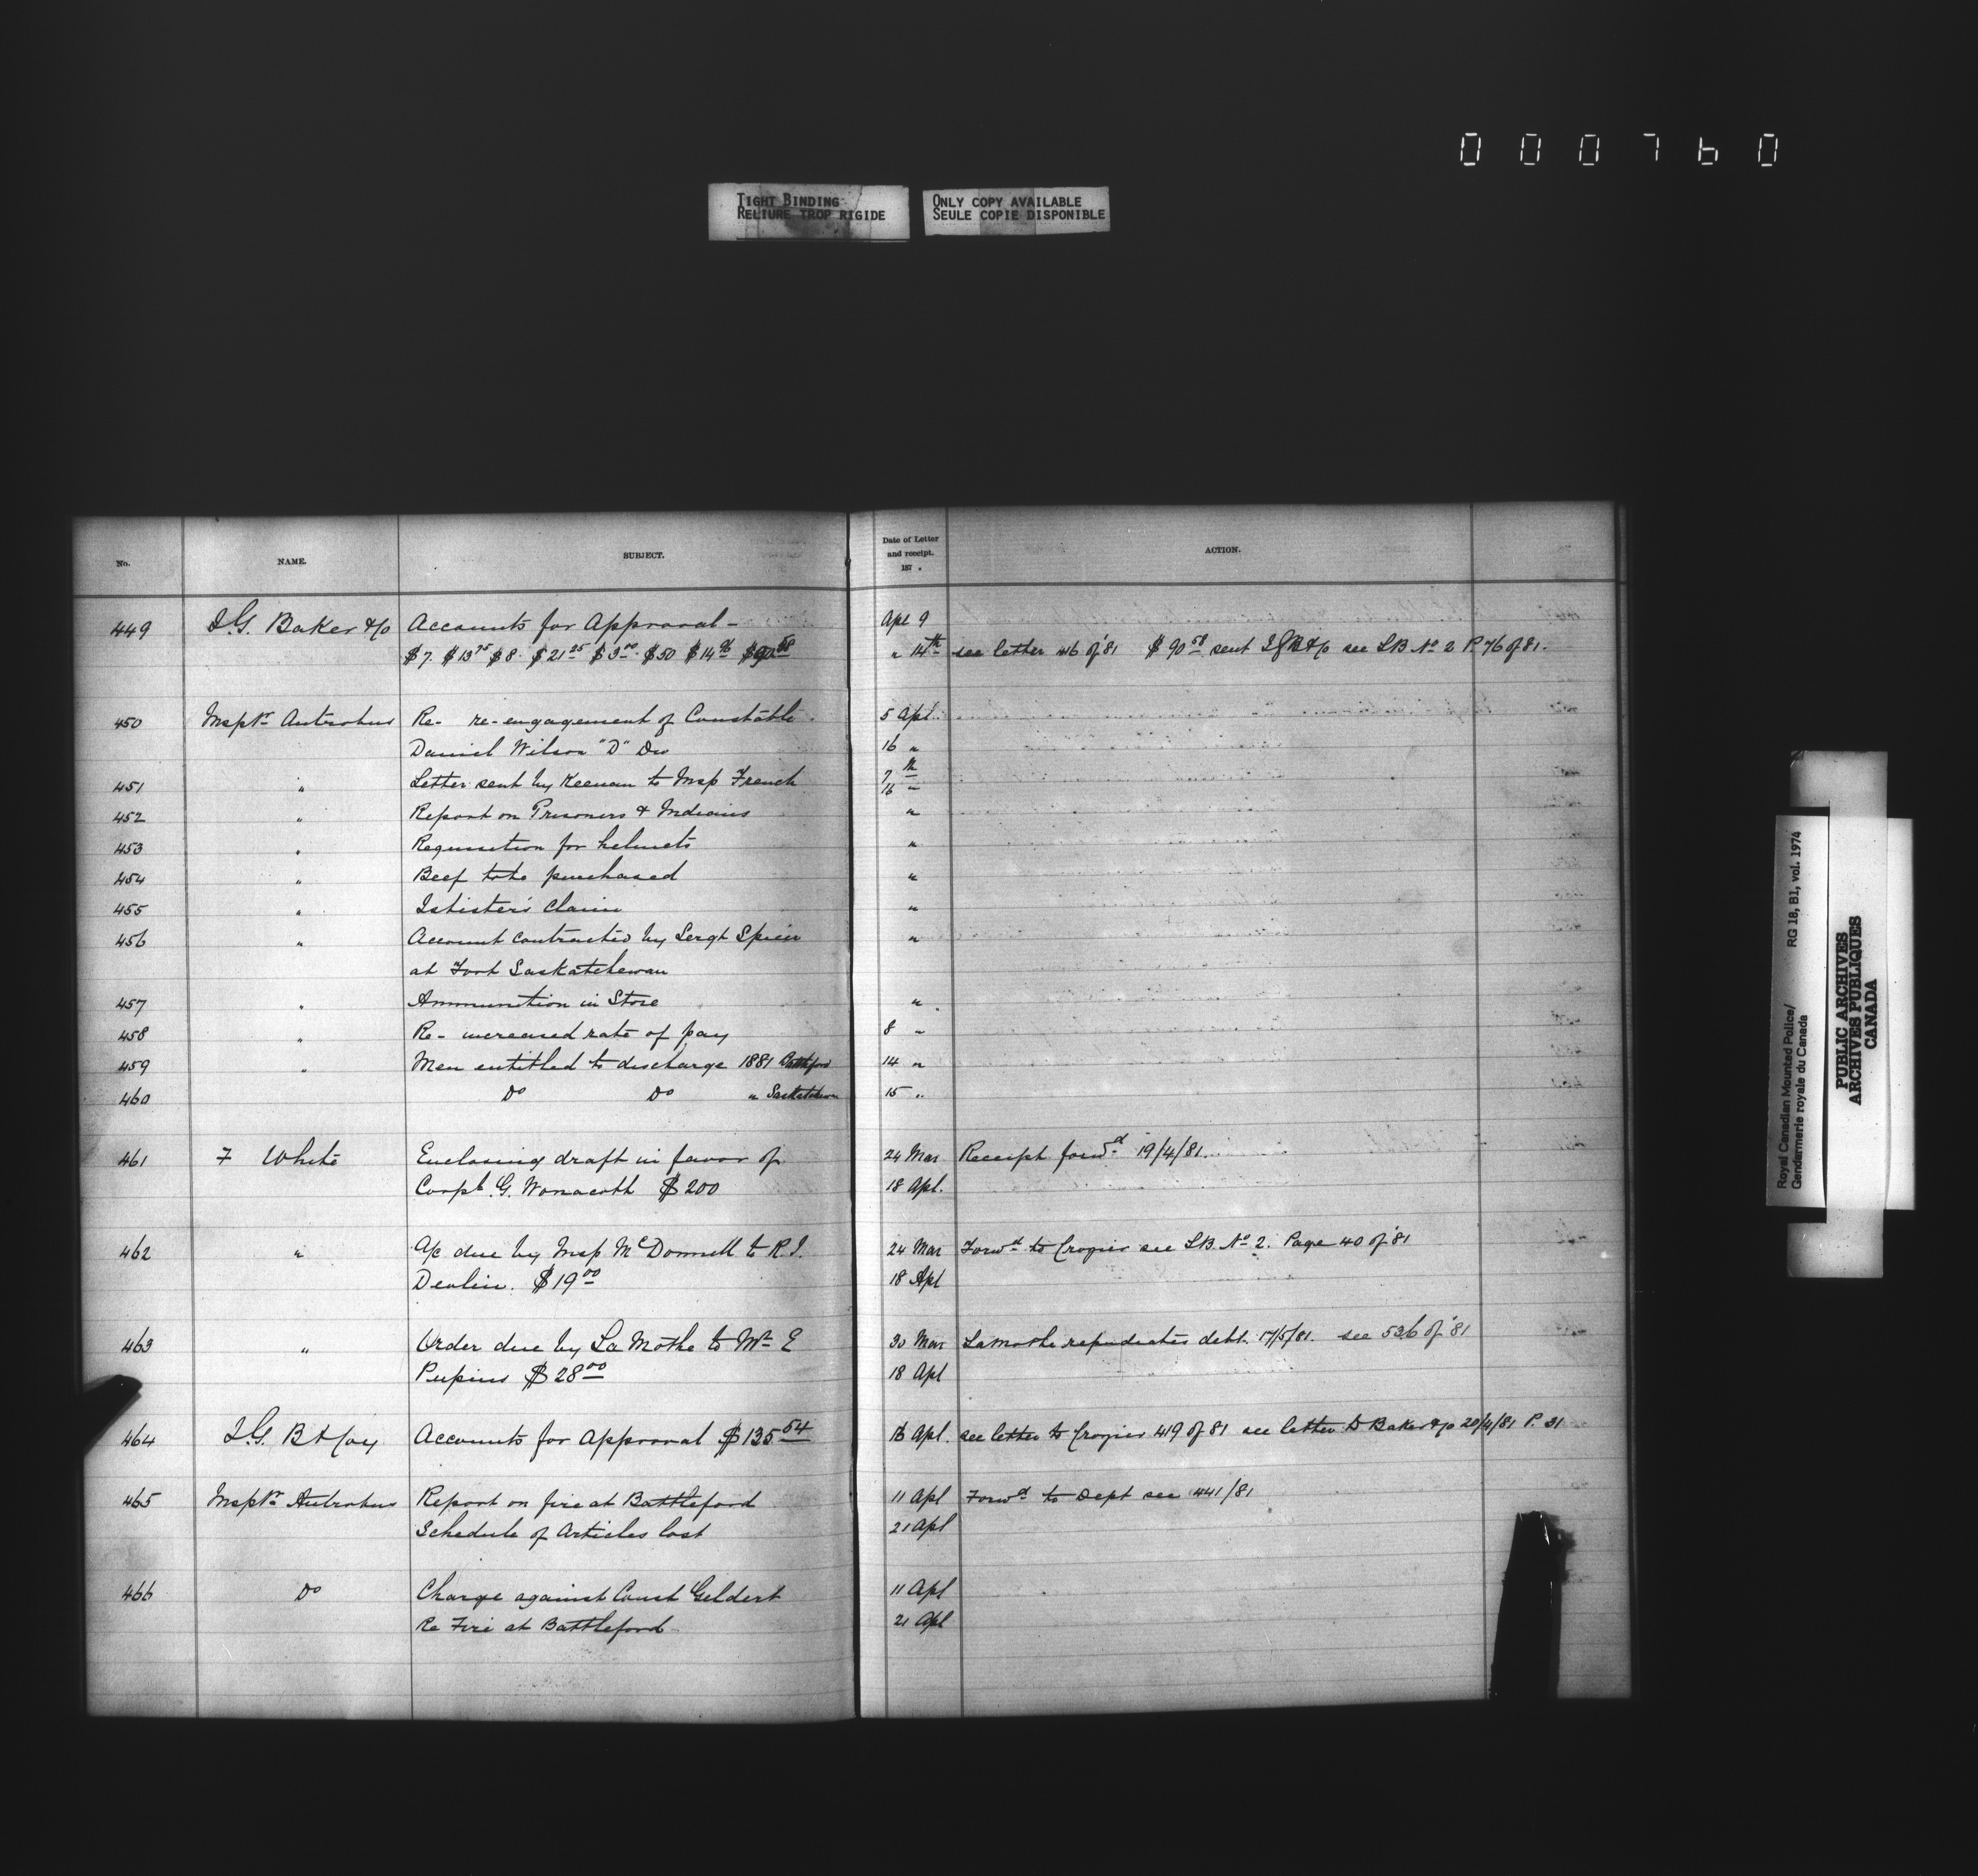 000760
TIGHT BINDING
RELIURE TROP RIGIDE
ONLY COPY AVAILABLE
SEULE COPIE DISPONIBLE
No. NAME. SUBJECT. Date of Letter and receipt. 187 . ACTION.
449 I.G. Baker & Co Accounts for Approval - Apl 9
$7. $13 75 $8. $21 25 $3 00. $50 $14 $90 58 " 14th see letter 416 of '81 $90 58 sent I G B & Co see LB No 2 P. 76 of 81.
450 Inspr Antrobus Re- re-engagement of Constable 5 Apl.
Daniel Wilson "D" Div 16 "
451 " Letter sent by Keenan to Insp French 7 th
16 "
452 " Report on Prisoners & Indians "
453 " Requisition for helmets "
454 " Beef to be purchased "
455 " Isbister's Claim "
456 " Account contracted by Sergt Spicer "
at Fort Saskatchewan
457 " Ammunition in Store "
458 " Re- increased rate of pay 8 "
459 " Men entitled to discharge 1881 Battleford 14 "
460 Do Do " Saskatchewan 15 "
461 F White Enclosing draft in favor of 24 Mar Receipt forwd 19/4/81.
Corpl. G. Wonacott $200 18 Apl.
462 " A/c due by Insp McDonnell to R.J. 24 Mar Forwd to Crozier see LB. No 2. Page 40 of '81
Devlin. $19 00 18 Apl
463 " Order due by LaMothe to Mr E 30 Mar LaMothe repudiates debt. 17/5/81. see 536 of '81
Pupins $28 00 18 Apl
464 I.G. B & Coy Accounts for Approval $135 54 16 Apl. see letter to Crozier 419 of 81 see letter to Baker & Co 20/4/81 P. 31
465 Inspr Antrobus Report on fire at Battleford 11 Apl Forwd to Dept see 441/81
Schedule of Articles lost 21 Apl
466 Do Charge against Const Geldert 11 Apl
Re Fire at Battleford 21 Apl
Royal Canadian Mounted Police/ RG 18, B1, vol. 1974
Gendarmerie royale du Canada
PUBLIC ARCHIVES
ARCHIVES PUBLIQUES
CANADA